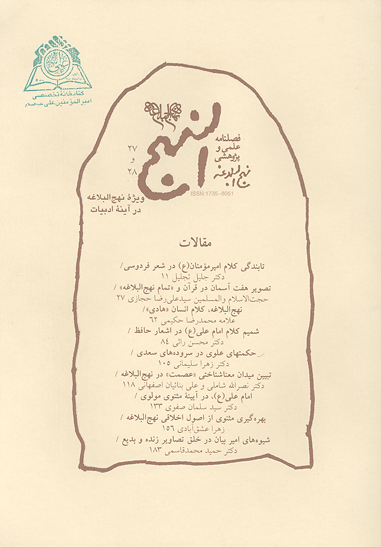 کتابخانه تخصصی
امیرالمؤمنین علی علیه‌السلام
فصلنامه
علمی و
پژوهشی
نهج البلاغه
النهج
۲۷
و
۲۸
ISSN:1735-8051
ویژهٔ نهج‌البلاغه
در آینهٔ ادبیات
مقالات
تابندگی کلام امیرمؤمنان(ع) در شعر فردوسی/
دکتر جلیل تجلیل ۱۱
تصویر هفت آسمان در قرآن و «تمام نهج‌البلاغه»/
حجت‌الاسلام والمسلمین سیدعلی‌رضا حجازی ۲۷
نهج‌البلاغه، کلام انسان «هادی»/
علامه محمدرضا حکیمی ۶۲
شمیم کلام امام علی(ع) در اشعار حافظ/
دکتر محسن راثی ۸۴
حکمتهای علوی در سروده‌های سعدی/
دکتر زهرا سلیمانی ۱۰۵
تبیین میدان معناشناختی «عصمت» در نهج‌البلاغه/
دکتر نصرالله شاملی و علی بنائیان اصفهانی ۱۱۸
امام علی(ع)، در آیینهٔ مثنوی مولوی/
دکتر سید سلمان صفوی ۱۳۳
بهره‌گیری مثنوی از اصول اخلاقی نهج‌البلاغه/
زهرا عشق‌آبادی ۱۵۶
شیوه‌های امیر بیان در خلق تصاویر زنده و بدیع/
دکتر حمید محمدقاسمی ۱۸۳